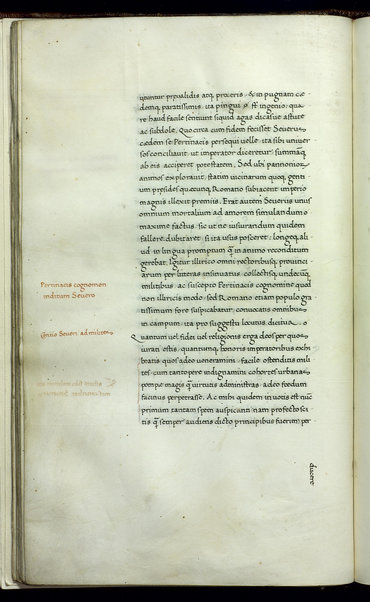 utuntur praevalidis atq. proceris. & in pugnam cæ
demq. paratissimis. ita pingui & ingenio: qua
re haud facile sentiunt siquid agas dicasue astute
ac subdole. Quocirca cum fidem fecisset Seuerus
cædem se Pertinacis persequi uelle. ita sibi uniuer
sos conciliauit. ut imperator diceretur. summãq.
ab eis acciperet potestatem. Sed ubi pannonior.
animos explorauit. statim uicinarum quoq. genti
um præsides quicunq. Romano subiacent imperio
magnis illexit premiis. Erat autem Seuerus unus
omnium mortalium ad amorem simulandum
maxime factus. sic ut ne iusiurandum quidem
fallere dubitaret. si ita usus posceret: longeq. ali
ud in lingua promptum q̃ in animo reconditum
gerebat. Igitur illirico omni rectoribusq. prouinci
arum per litteras insinuatus. collectisq. undecũq.
militibus. ac suscepto Pertinacis cognomine quod
non illiricis modo. sed Romano etiam populo gra
tissimum fore suspicabatur. conuocatis omnibus
in campum. ita pro suggestu locutus dicitur.
Quantum uel fidei uel religionis erga deos per quos
iurati estis. quantumq. honoris imperatoribus exhi
beatis. quos adeo ueneramini. facile ostenditis mili
tes. cum tantopere indignamini cohortes urbanas
pompæ magis q̃ uirtutis administras. adeo fœdum
facinus perpetrasse. Ac mihi quidem in uotis est nũc
primum tantam spem auspicanti. nam profecto sci
tis q̃ semper audiens dicto principibus fuerim) per
Pertinacis cognomen
inditum Seuero
Seueri ad milites